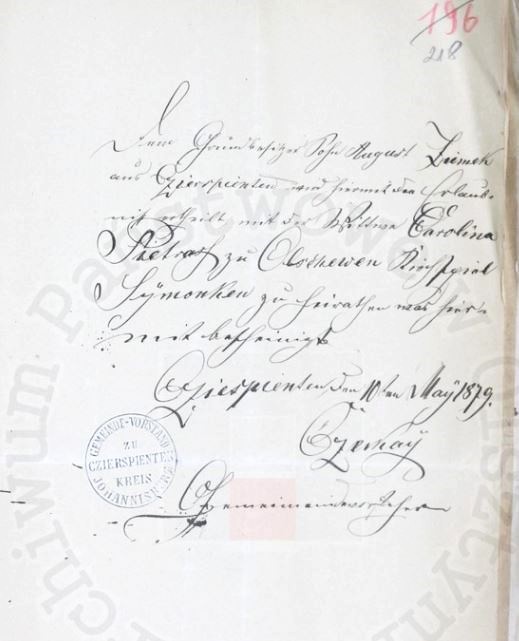 196
218
Dem Grundbesitzer Sohn August Ziemek
aus Czierspienten wird hiermit die Erlaub-
niß ertheilt mit der Wittwe Carolina
Pietras zu Olschewen Kirchspiel
Symonken zu heirathen was hier-
mit bescheinigt
Czierspienten, den 10ten May 1879.
Czerkay
Gemeindevorsteher
GEMEINDE-VORSTAND
ZU
CZIERSPIENTEN
KREIS
JOHANNISBURG
Archiwum Państwowe w Olsztynie